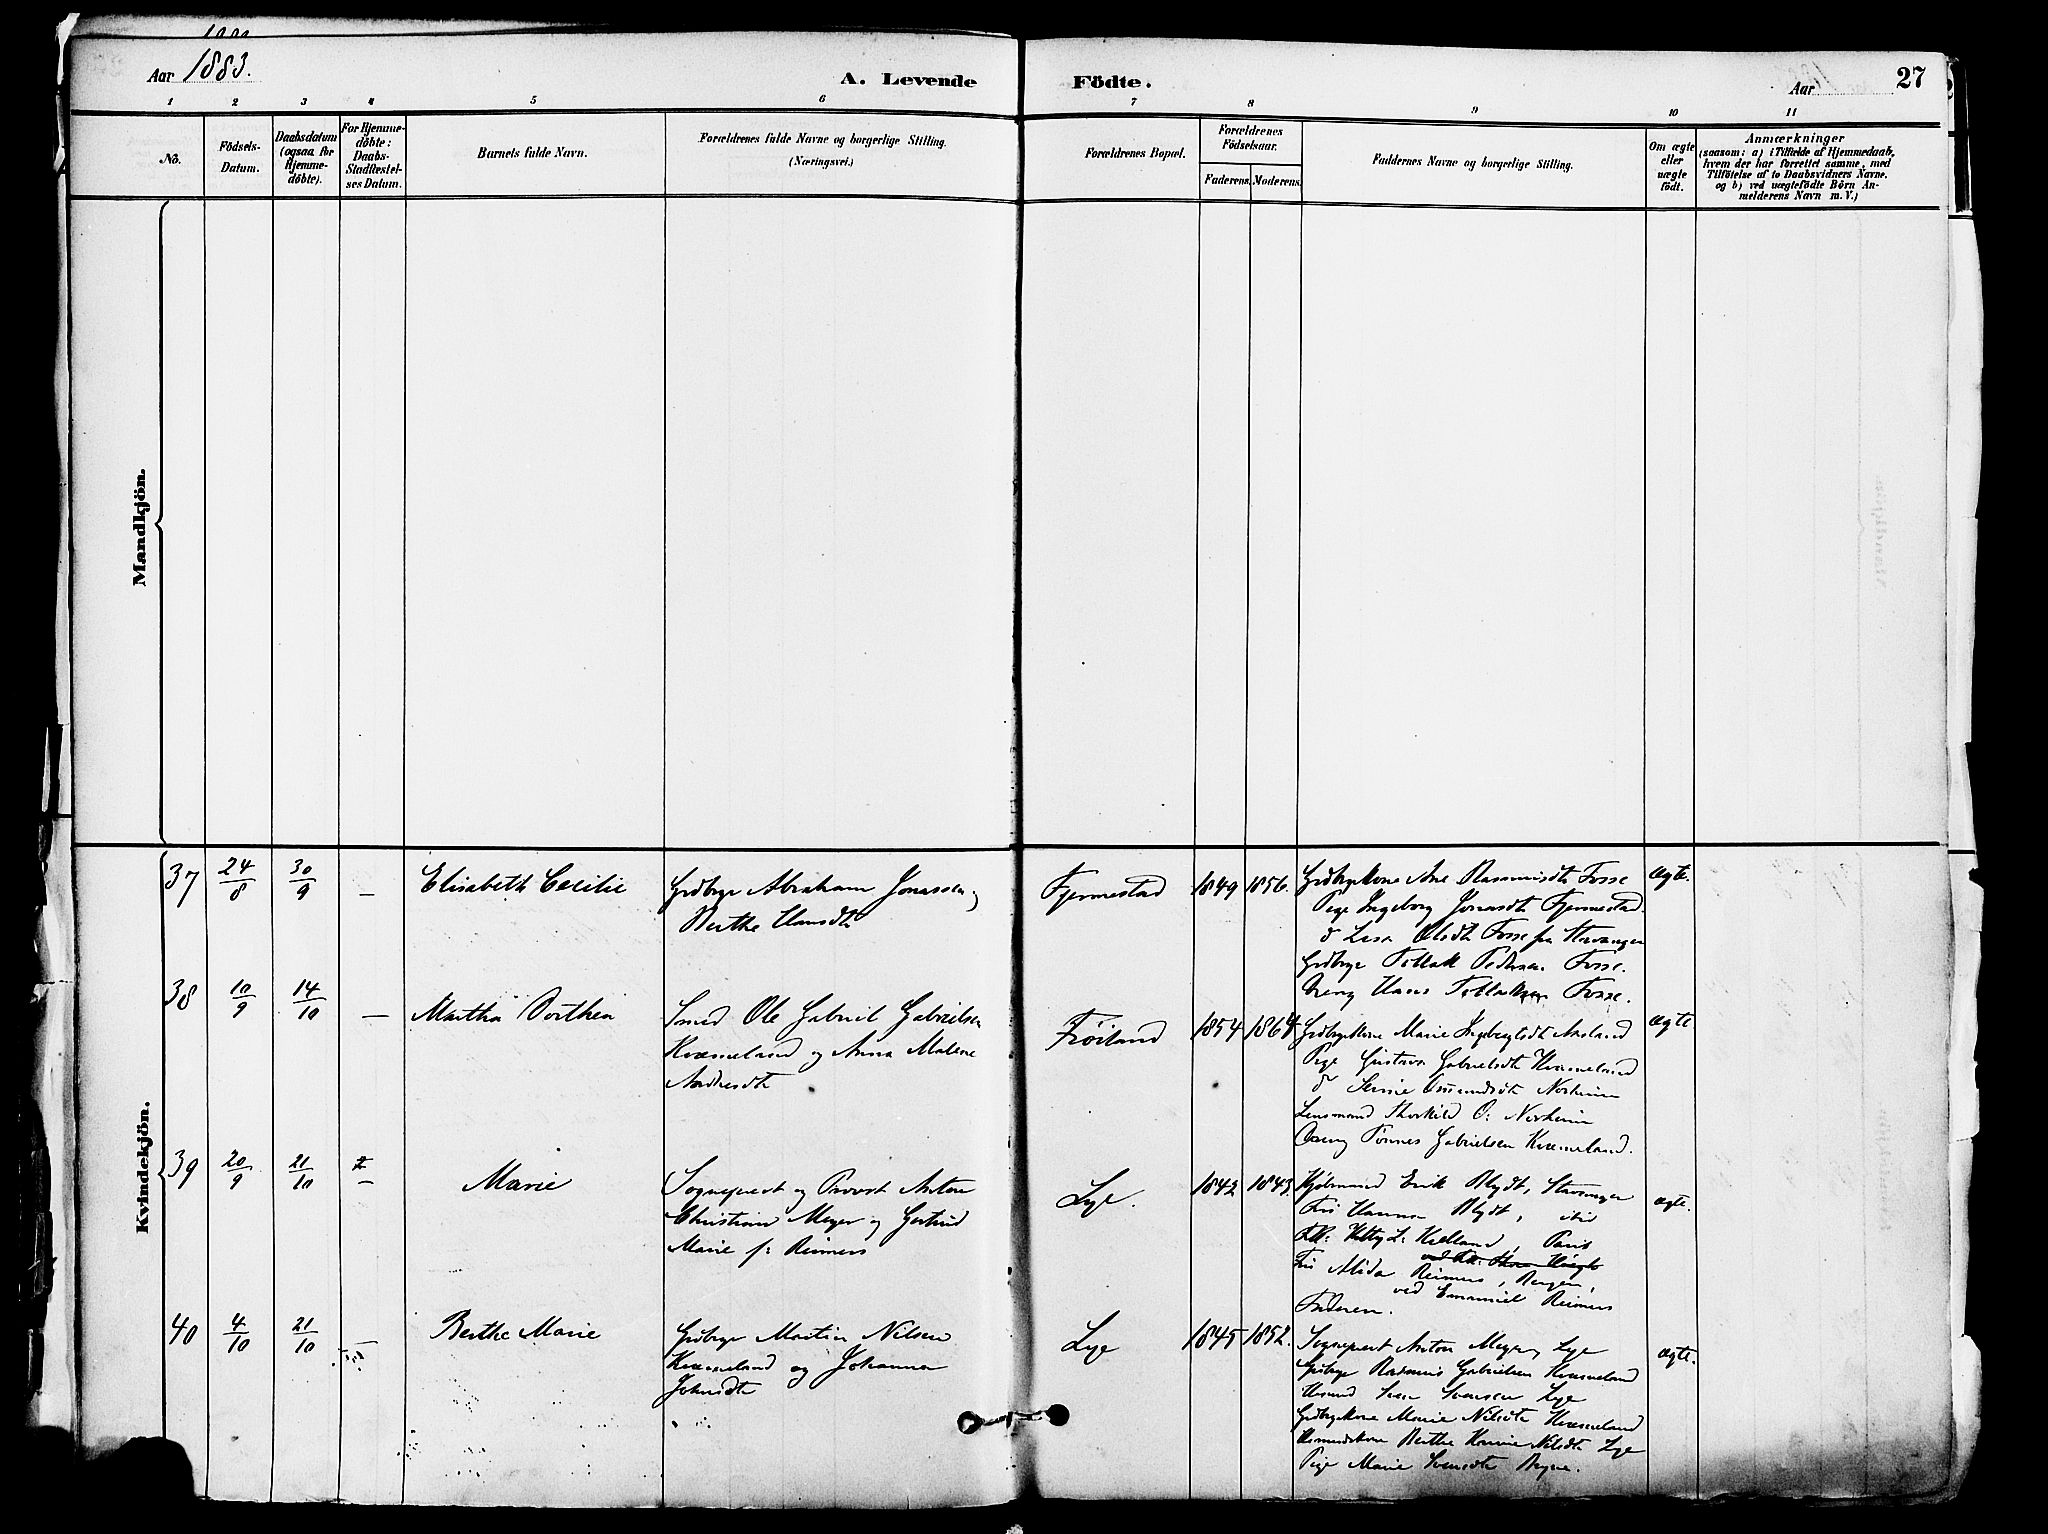 Aar 1883.
A. Levende Födte.
Aar
27
1 2 3 4 5 6 7 8 9 10 11
No.
Födsels-
Datum.
Daabsdatum
(ogsaa for
Hjemme-
döbte).
For Hjemme-
döbte:
Daabs-
Stadfæstel-
ses Datum.
Barnets fulde Navn.
Forældrenes fulde Navne og borgerlige Stilling.
(Næringsvei.)
Forældrenes Bopæl.
Forældrenes
Födselsaar.
Faderens. Moderens.
Faddernes Navne og borgerlige Stilling.
Om ægte
eller
uægte
födt.
Anmærkninger
(saasom: a) i Tilfælde af Hjemmedaab,
hvem der har forrettet samme, med
Tilföielse af to Daabsvidners Navne.
og b) ved uægtefödte Börn An-
melderens Navn m.V.)
Mandkjön.
Kvindekjön.
37 24/8 30/9 —
Elisabeth Cecilie
Grdbrgr Abraham Jonassen,
Berthe Hansdt
Fjermestad
1849 1856.
Grdbrgrkone Ane Rasmusdt Fosse
Pige Ingeborg Jonasdt Fjermestad.
d Lisa Olsdt Fosse fra Stavanger
Grdbrgr Tollak Pedersen Fosse.
Ungk Hans Tollaksen Fosse.
ægte.
38 10/9 14/10 —
Martha Dorthea
Smed Ole Gabriel Gabrielsen
Kværneland og Anna Malene
Andreasdt
Frøiland
1854 1864
Grdbrgrkone Marie Ingebrigtsdt Aasland
Pige Gustava Gabrielsdt Kværneland
d Serine Osmundsdt Norheim
Lensmand Thorkild O: Norheim
Ungk Tønnes Gabrielsen Kværneland.
ægte
39 20/9 21/10 —
Marie
Sogneprest og Provst Anton
Christian Meyer og Gertrud
Marie f: Reimers
Lye.
1842 1843.
Kjøbmand Erik Blydt, Stavanger
Fru Hanna Blydt, ibid
Frk: Kitty L: Kielland, Paris
Fru Alida Reimers, Bergen,
ved Emanuel Reimers
Faderen.
ægte.
40 4/10 21/10 —
Berthe Marie
Grdbrgr Martin Nilsen
Kværneland og Johanna
Johnsdt
Lye
1845 1852.
Sogneprest Anton Meyer, Lye
Grdbrgr Rasmus Gabrielsen Kværneland
Husmd Sven Svensen Lye
Grdbrgrkone Marie Nilsdt Kværneland
Husmandskone Berthe Karine Nilsdt Lye
Pige Marie Svensdt Bryne.
ægte.